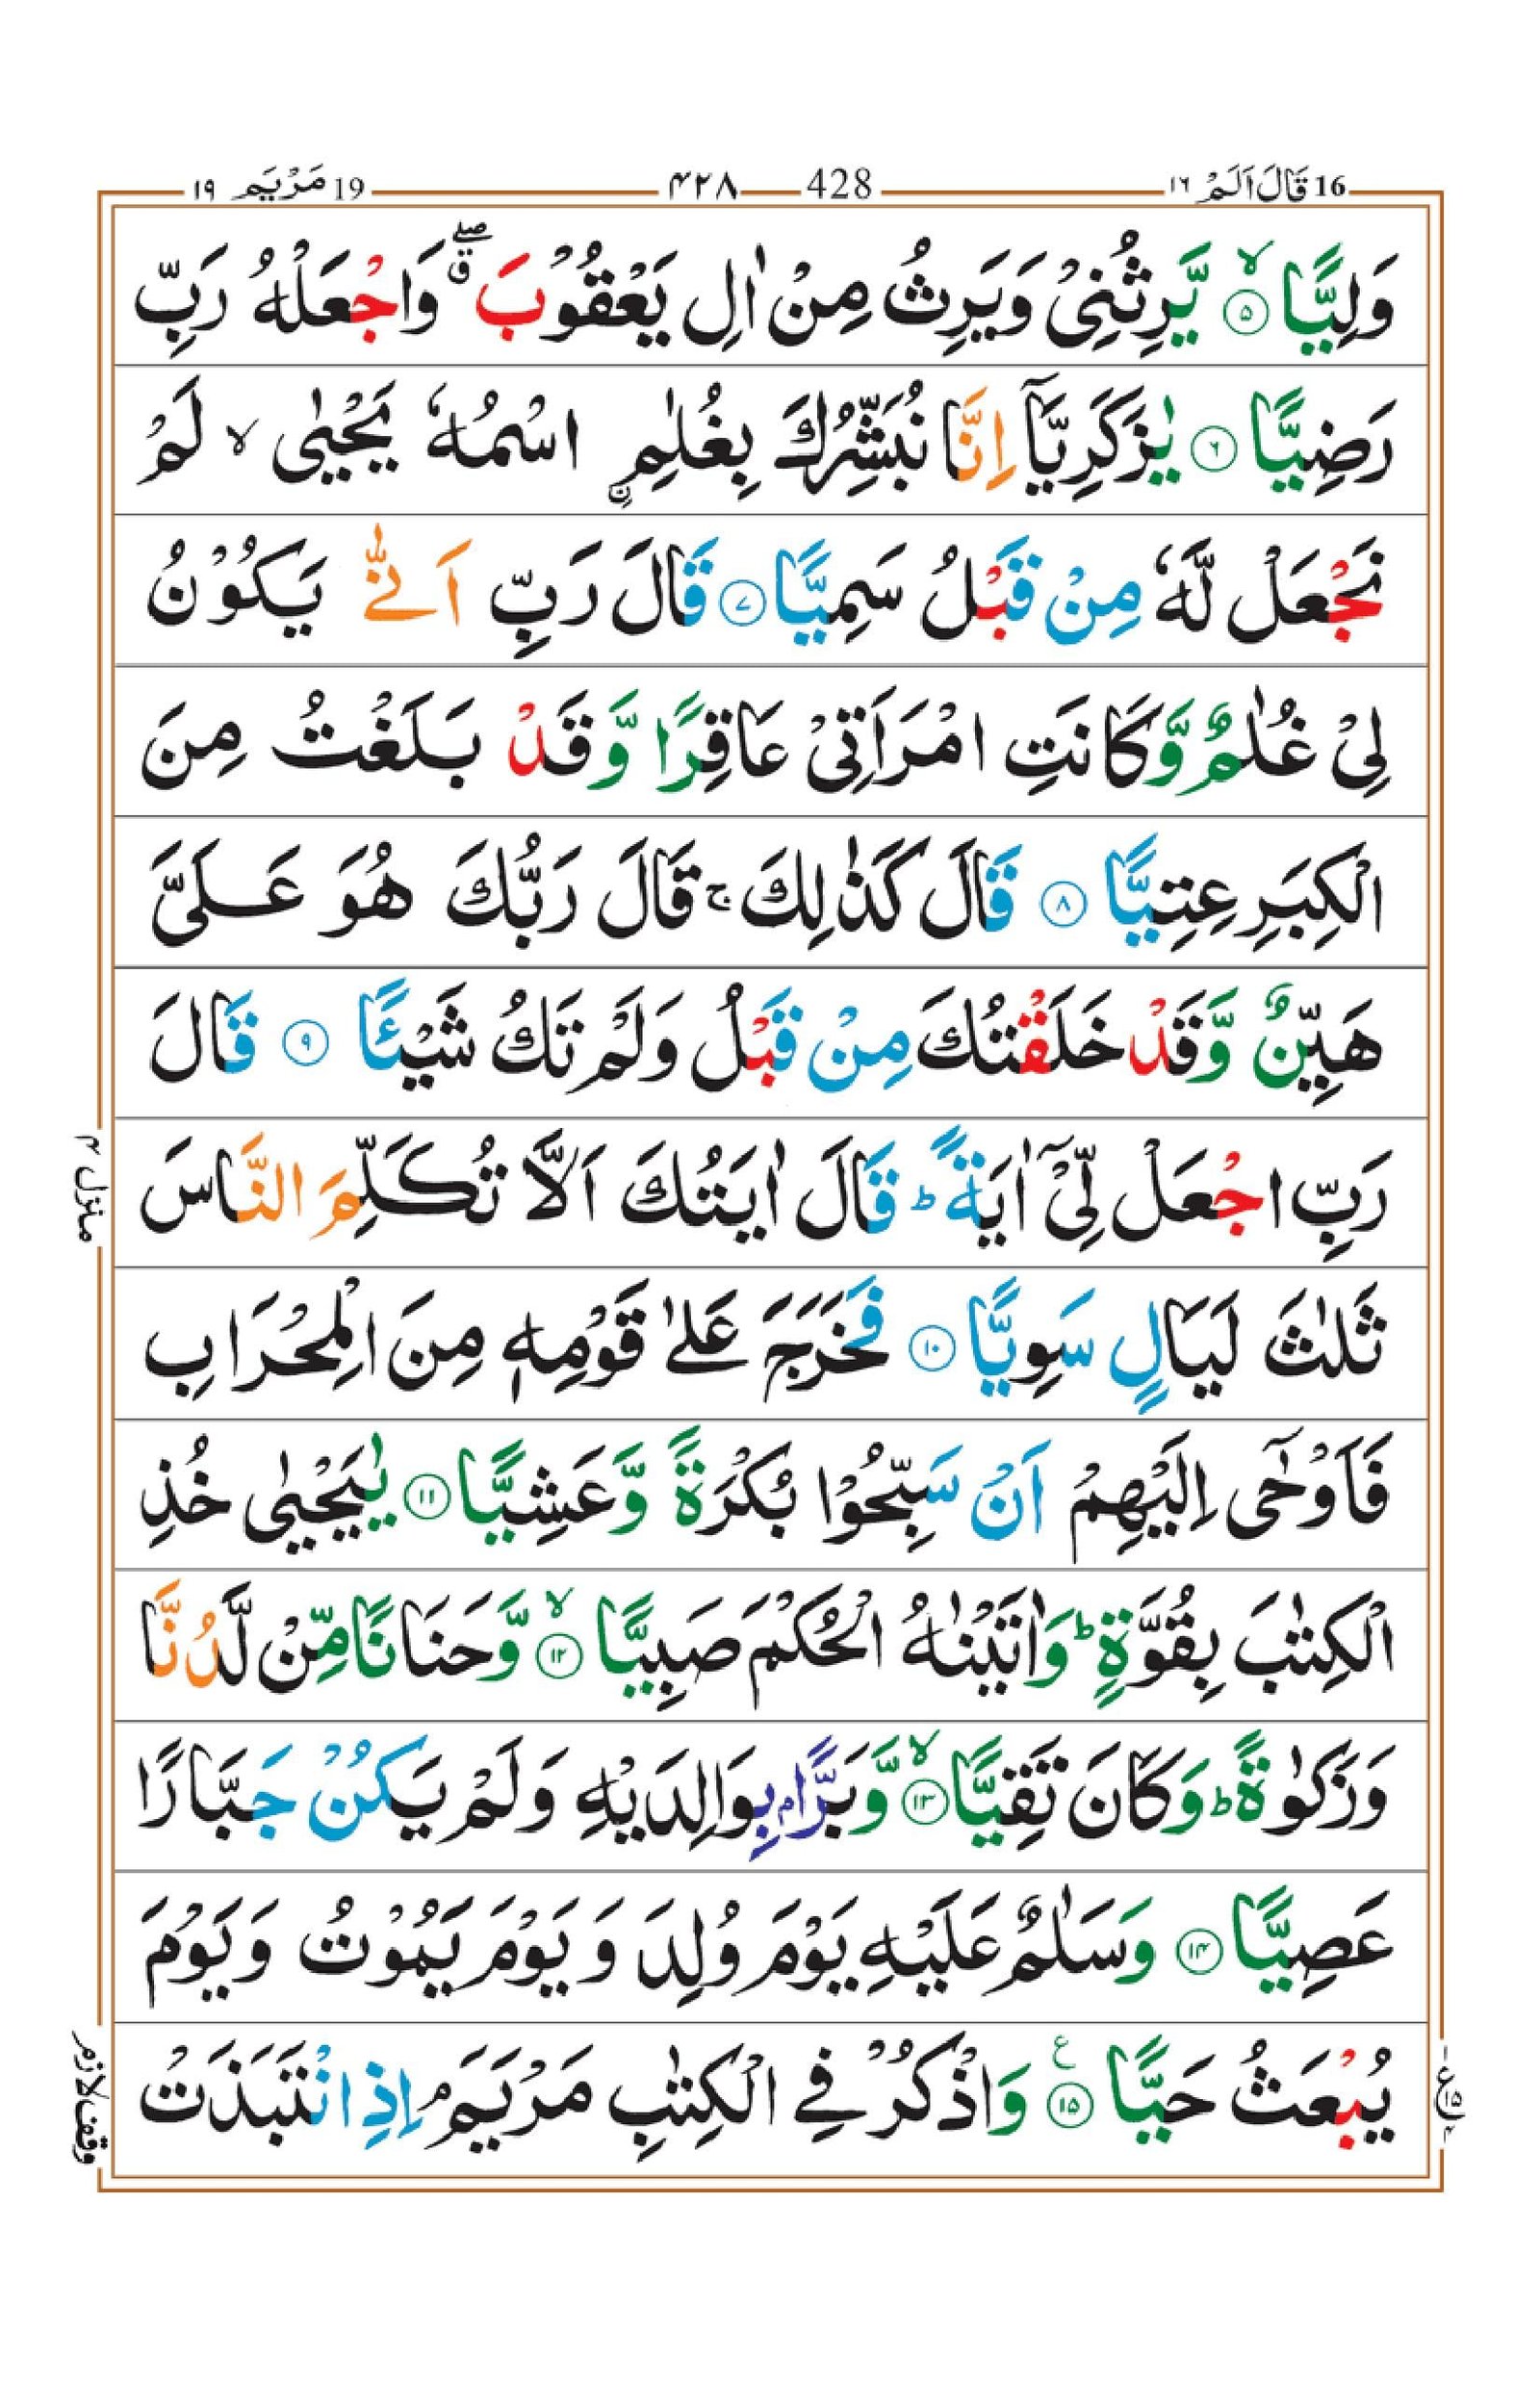 16 قَالَ اَلَمْ ١٦
428 ۴۲۸
19 مَرْيَم ١٩
وَلِيًّا ۙ‏﴿۵﴾ يَّرِثُنِىْ وَيَرِثُ مِنْ اٰلِ يَعْقُوْبَ ۖۗ وَاجْعَلْهُ رَبِّ
رَضِيًّا ﴿۶﴾ يٰزَكَرِيَّاۤ اِنَّا نُبَشِّرُكَ بِغُلٰمِ ۨ اسْمُهٗ يَحْيٰى ۙ لَمْ
نَجْعَلْ لَّهٗ مِنْ قَبْلُ سَمِيًّا ﴿۷﴾ قَالَ رَبِّ اَنّٰى يَكُوْنُ
لِىْ غُلٰمٌ وَّكَانَتِ امْرَاَتِىْ عَاقِرًا وَّقَدْ بَلَغْتُ مِنَ
الْكِبَرِ عِتِيًّا ﴿۸﴾ قَالَ كَذٰلِكَ ۚ قَالَ رَبُّكَ هُوَ عَلَىَّ
هَيِّنٌ وَّقَدْ خَلَقْتُكَ مِنْ قَبْلُ وَلَمْ تَكُ شَيْئًا ﴿۹﴾ قَالَ
رَبِّ اجْعَلْ لِّىْۤ اٰيَةً ؕ قَالَ اٰيَتُكَ اَلَّا تُكَلِّمَ النَّاسَ
ثَلٰثَ لَيَالٍ سَوِيًّا ﴿۱۰﴾ فَخَرَجَ عَلٰى قَوْمِهٖ مِنَ الْمِحْرَابِ
فَاَوْحٰۤى اِلَيْهِمْ اَنْ سَبِّحُوْا بُكْرَةً وَّعَشِيًّا ﴿۱۱﴾ يٰيَحْيٰى خُذِ
الْكِتٰبَ بِقُوَّةٍ ؕ وَاٰتَيْنٰهُ الْحُكْمَ صَبِيًّا ۙ‏﴿۱۲﴾ وَّحَنَانًا مِّنْ لَّدُنَّا
وَزَكٰوةً ؕ وَكَانَ تَقِيًّا ۙ‏﴿۱۳﴾ وَّبَرًّۢا بِوَالِدَيْهِ وَلَمْ يَكُنْ جَبَّارًا
عَصِيًّا ﴿۱۴﴾ وَسَلٰمٌ عَلَيْهِ يَوْمَ وُلِدَ وَيَوْمَ يَمُوْتُ وَيَوْمَ
يُبْعَثُ حَيًّا ﴿۱۵﴾ ع وَاذْكُرْ فِى الْكِتٰبِ مَرْيَمَ ۘ اِذِ انْتَبَذَتْ
منزل ۴
وقف لازم